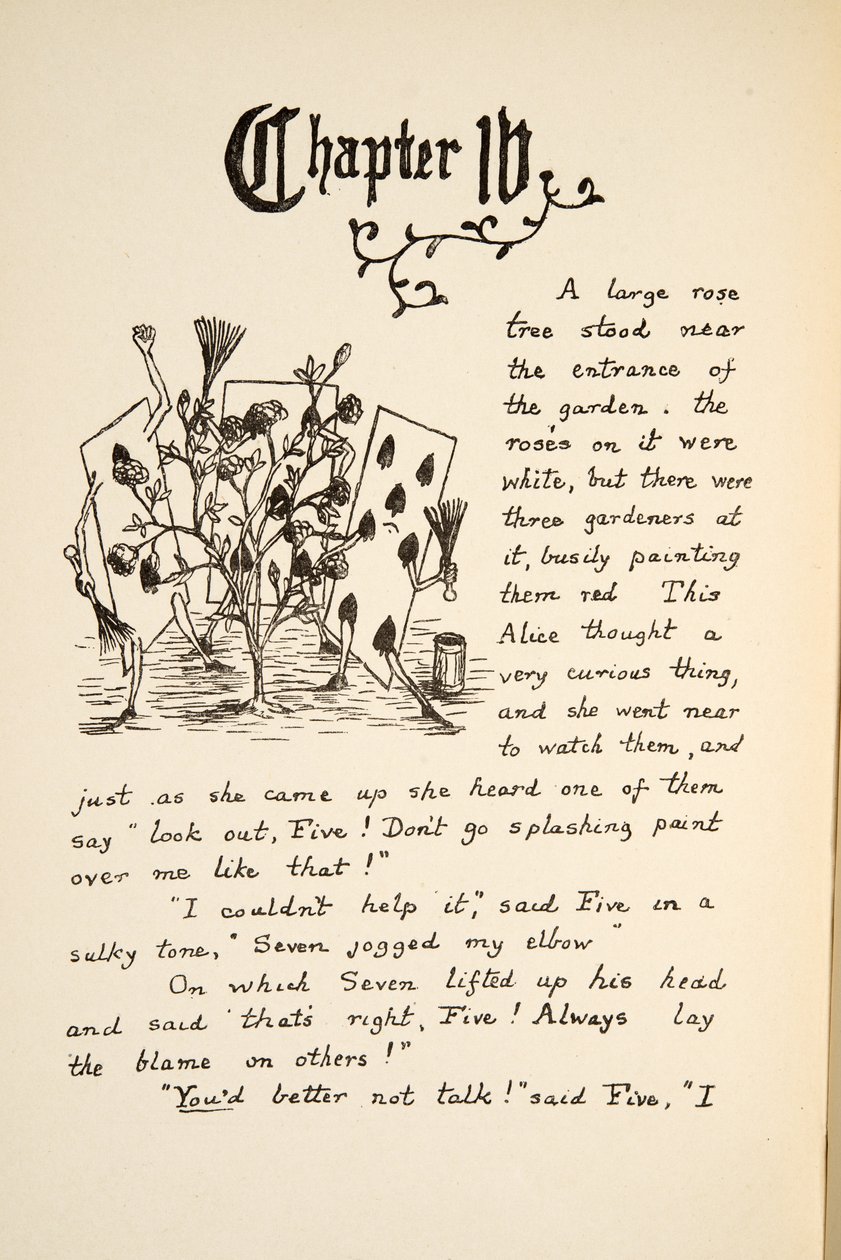 Chapter IV
A large rose
tree stood near
the entrance of
the garden . the
rose's on it were
white, but there were
three gardeners at
it, busily painting
them red This
Alice thought a
very curious thing,
and she went near
to watch them , and
just .as she came up she heard one of them
say " look out, Five ! Don't go splashing paint
over me like that !"
"I couldn't help it," said Five in a
sulky tone, " Seven jogged my elbow "
On which Seven lifted up his head
and said ' that's right, Five ! Always lay
the blame on others !"
"You'd better not talk !" said Five, "I